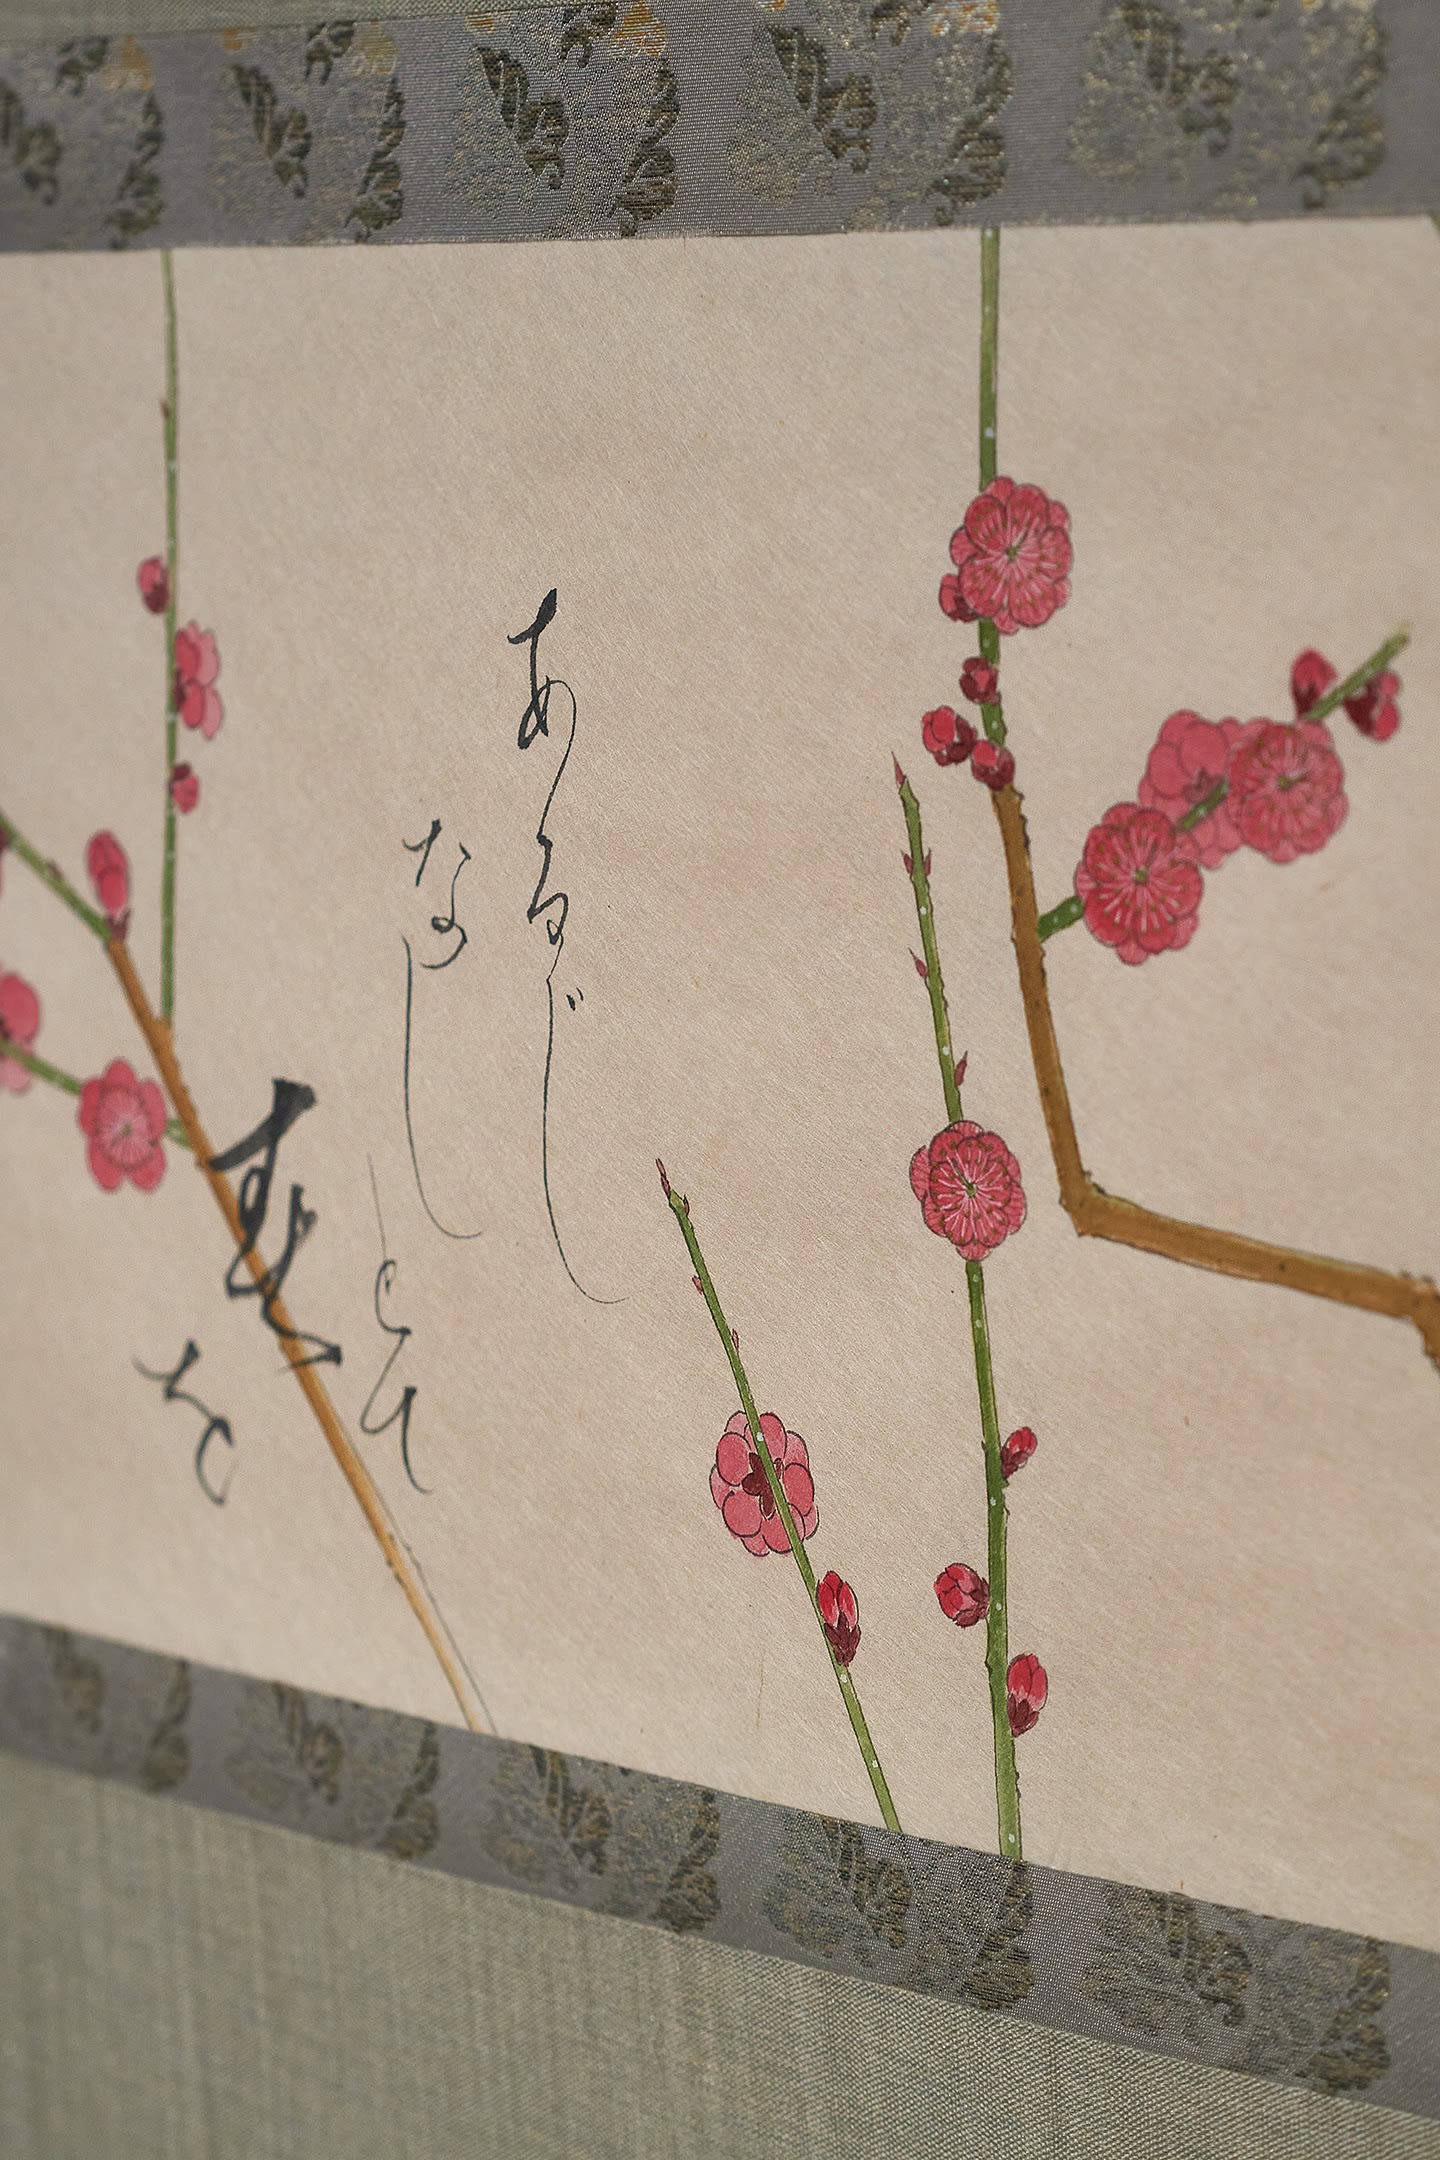 あるじ
なし
とて
春
を